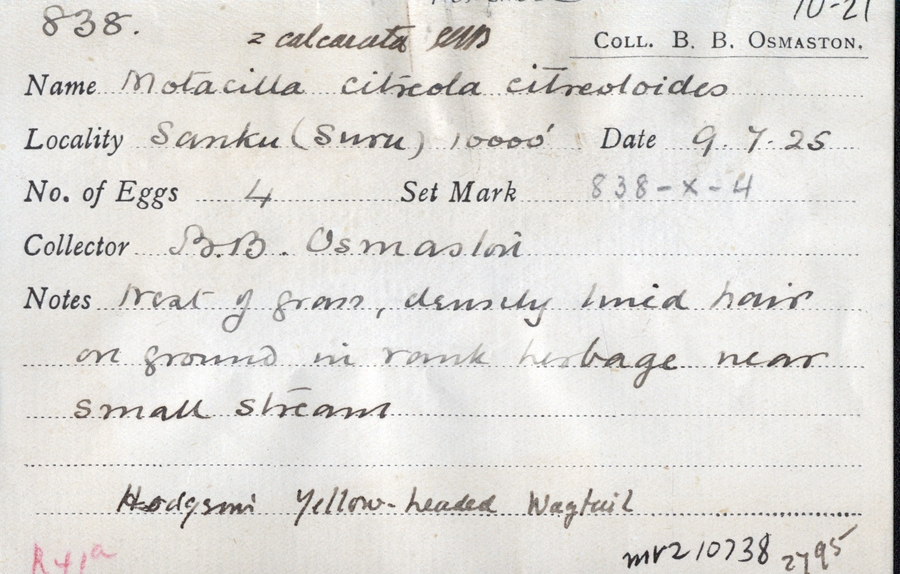 10-21
838.
= calcarata
COLL. B. B. OSMASTON.
Name Motacilla citreola citreoloides
Locality Sanku (Suru) 10000' Date 9.7.25
No. of Eggs 4 Set Mark 838-x-4
Collector B.B. Osmaston
Notes Nest of grass, densely lined hair
on ground in rank herbage near
small stream
Hodgsons Yellow-headed Wagtail
R41a
mvz 10738 2795